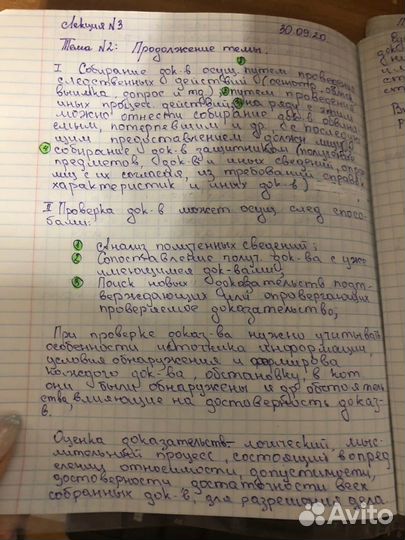 Лекция №3 30.09.20
Тема №2: Продолжение темы.
I Собирание док-в осущ. путем проведения
следственных действий (осмотр, обыск
выимка, допрос и тд.); путем проведения
иных процес. действий, на ряду с этим
можно отнести собирание док-в обвиня
емым, потерпевшим и др. с последую
щим предоставлением должн. лицу;
собирание док-в защитником (получение
предметов, док-в и иных сведений, опрос
лиц с их согласия, из требований справок
характеристик и иных док-в)
II Проверка док-в может осущ след спосо-
бами:
1 Анализ полученных сведений;
2 Сопоставление получ. док-ва с уже
имеющимися док-вами;
3 Поиск новых доказательств подт-
верждающих или опровергающих
проверяемое доказательство;
При проверке доказ-ва нужно учитывать
особенности источника информации,
условия обнаружения
каждого док-ва, обстановку, в кот
они были обнаружены и др обстоятель
ства, влияющие на достоверность доказ-
в.
Оценка доказательств- логический, мыс-
лительный процесс, состоящий в опред
елении относимости, допустимости,
достоверности достаточности всех
собранных док-в, для разрешения дела
Avito